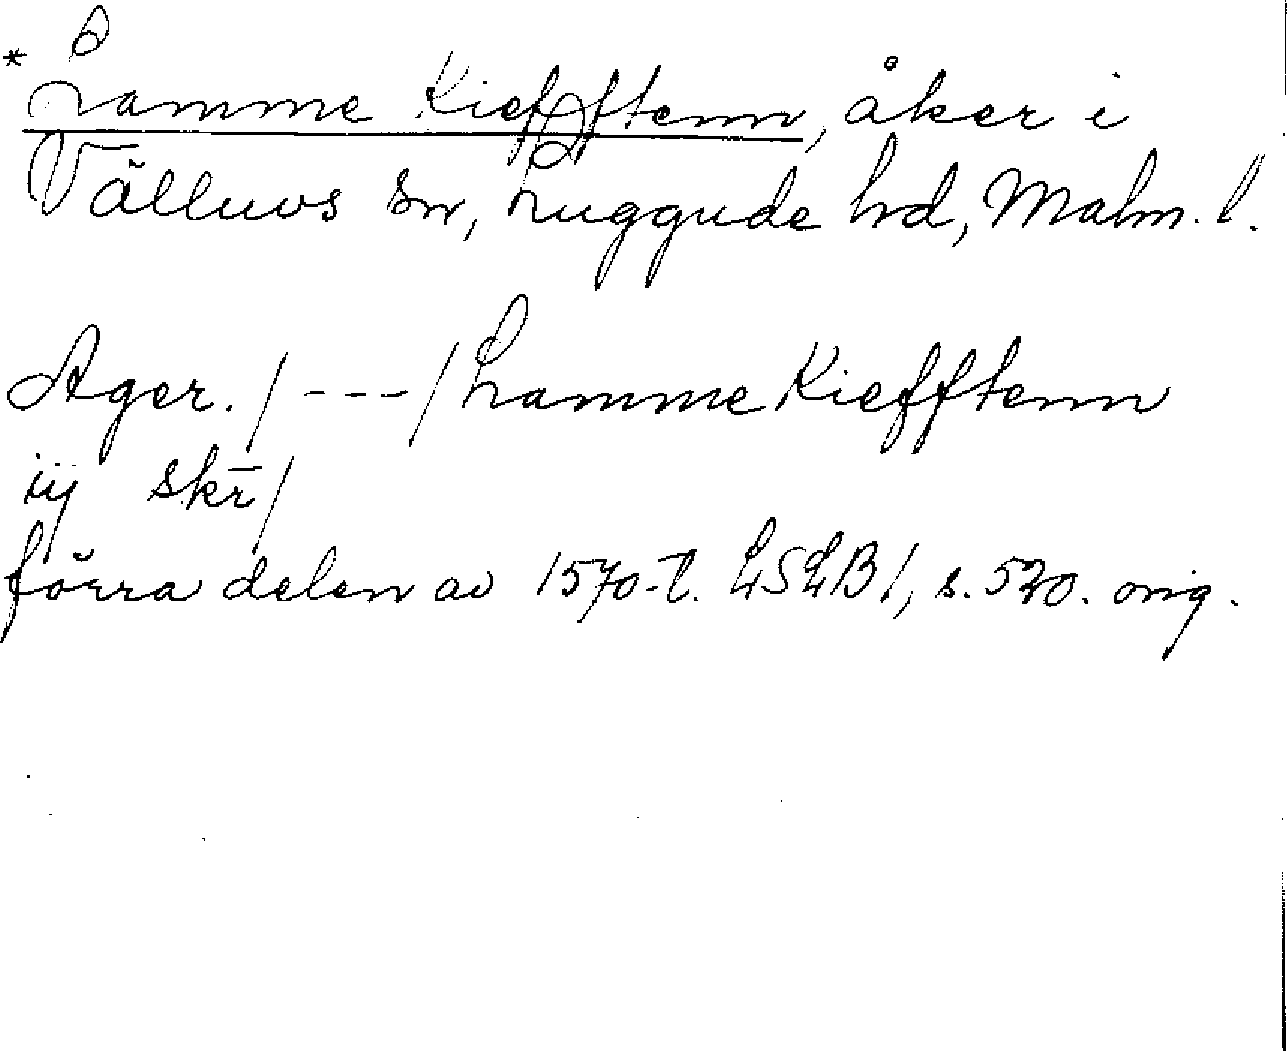 * Lamme Kiefftenn, åker i
Välluvs sn, Luggude hd, Malm. l.
Ager. / --- / Lamme Kiefftenn
iij skr̄ /
förra delen av 1570-t. LSLB 1, s. 520. orig.